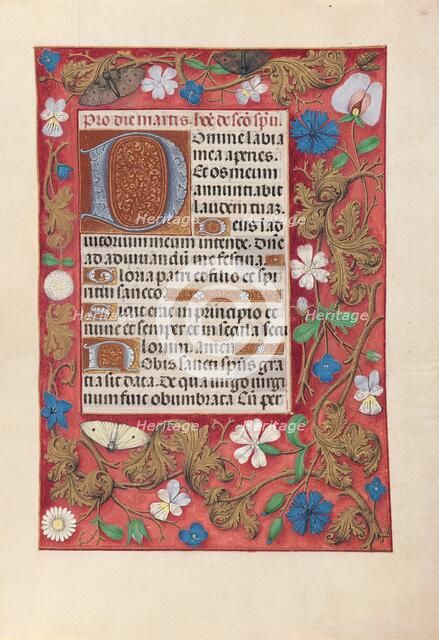 Pro die martis. hoc de sco spu.
Domine labia
mea aperies.
Et os meum
annunciabit
laudem tuam.
Deus in ad
iutorium meum intende. Dne
ad adiuvandu me festina.
Gloria patri et filio et spi
ritui sancto
Sicut erat in principio et
nunc et semper et in secula secu
lorum. amen
Nobis sancti spus gra
cia sit data. De qua virgo virgi
num fuit obumbrata. Cu per
Heritage Heritage
Heritage Heritage
Heritage Heritage